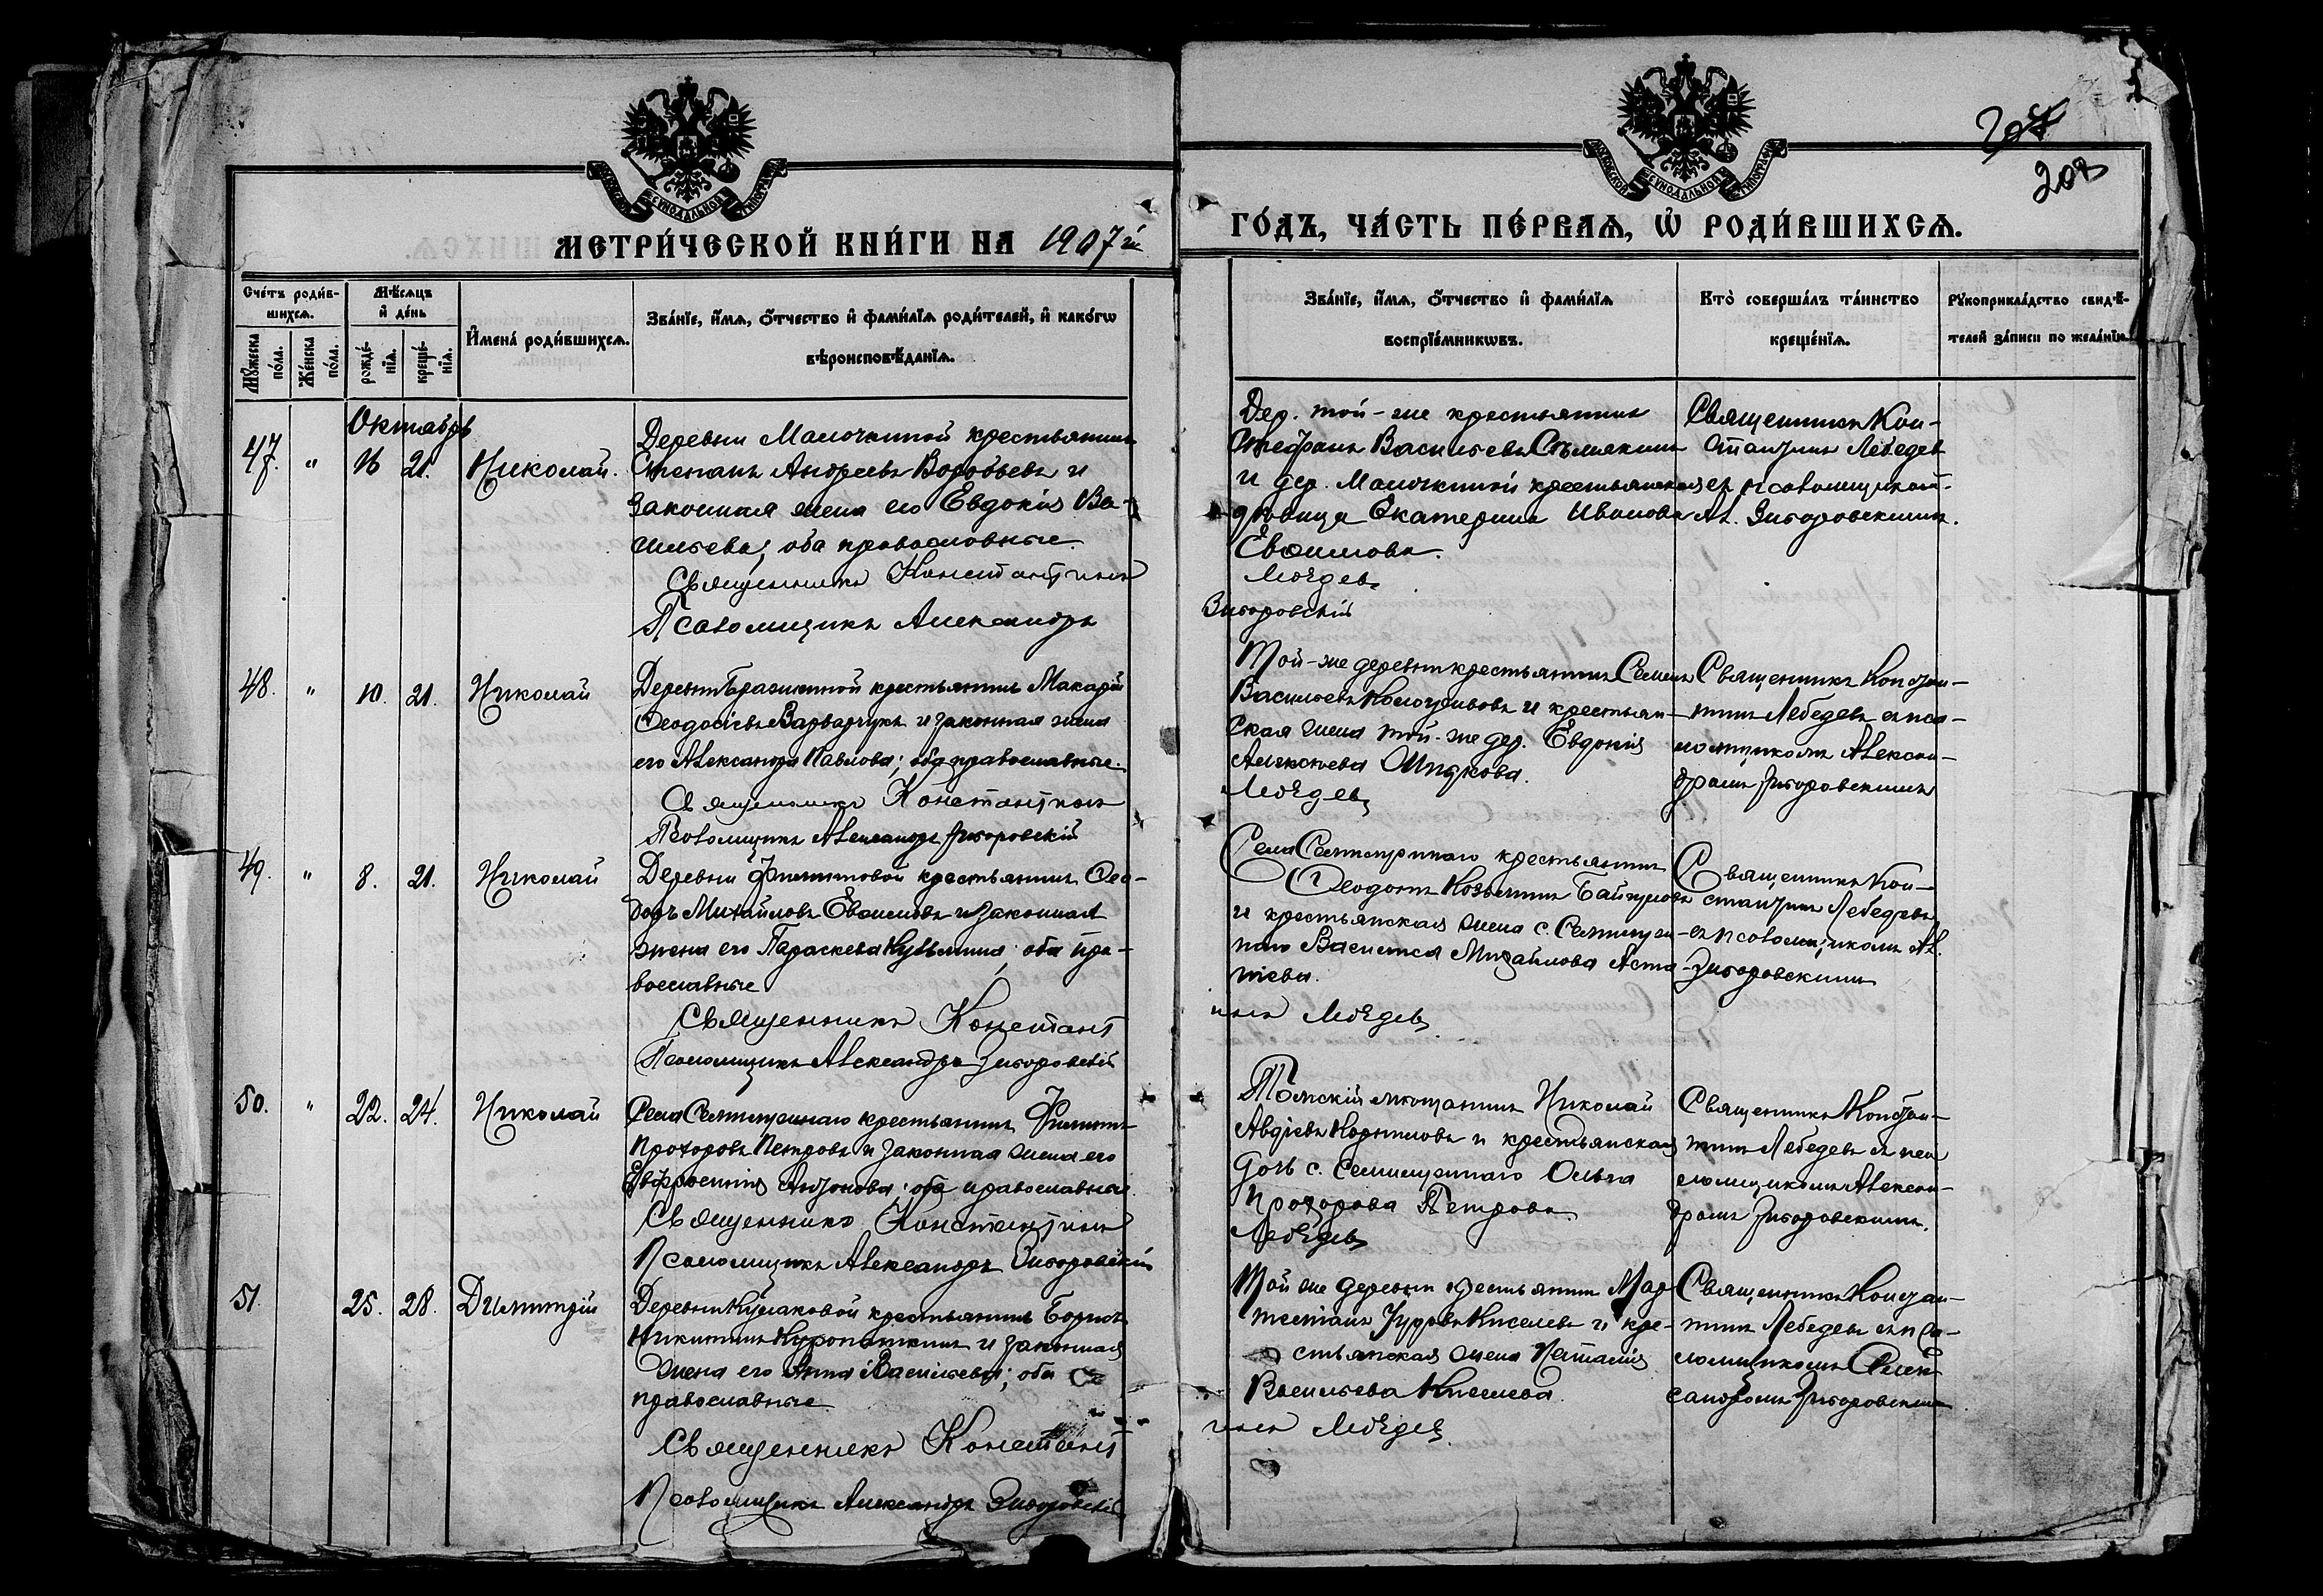 МЕТРИ́ЧЕСКОЙ КНИ́ГИ НА 1907 й
Сче́тъ роди́в-
шихсѧ.
Мѣ́сѧцъ
и҆ де́нь
И҆мена̀ роди́вшихсѧ.
Зва́нїе, и҆́мѧ, ѻ҆́тчество и҆ фами́лїѧ роди́телей, и҆ како́гѡ
вѣроисповѣ́данїѧ.
Мꙋ́жеска
по́ла.
Же́нска
по́ла.
рожде́-
нїѧ.
креще́-
нїѧ.
Октябрь
47. " 16 21. Николай.
Деревни Малочкиной крестьянинъ
Степанъ Андреевъ Воробьевъ и
законная жена его Евдокія Ва-
сильева; оба православные.
Священникъ Константинъ
Псаломщикъ Александръ
48. " 10. 21. Николай
крестьянинъ Макарій
Ѳеодосіевъ и законная жена
его Александра Павлова; оба православные.
Священникъ Константинъ
Псаломщикъ Александръ Зиборовскій
49. " 8. 21. Николай
Деревни крестьянинъ Ѳео-
доръ Михайловъ Евѳимовъ и законная
жена его Параскева Кузьмина; оба пра-
вославные
Священникъ Констант
Псаломщикъ Александръ Зиборовскій
50. " 22. 24. Николай
Села крестьянинъ Филиппъ
Прохоровъ Петровъ и законная жена его
Евфросинія Антонова; оба православные.
Священникъ Константинъ
Псаломщикъ Александръ Зиборовскій
51. 25. 28. Димитрій
Деревни крестьянинъ Борисъ
Никитинъ Куропаткинъ и законная
жена его Анна Васильева; оба
православные
Священникъ Констант
Псаломщикъ Александръ Зиборовскій
207
208
МОСКОВСКОЙ СѴНОДАЛЬНОЙ ТИПОГРАФІИ
ГО́ДЪ, ЧА́СТЬ ПЕ́РВАѦ, Ѡ҆ РОДИ́ВШИХСѦ.
Зва́нїе, и҆́мѧ, ѻ҆́тчество и҆ фами́лїѧ
воспрїе́мникѡвъ.
Кто̀ соверша́лъ та́инство
креще́нїѧ.
Рꙋкоприкла́дство свидѣ́-
телей за́писи по жела́нїю.
Дер. той-же крестьянинъ
Стефанъ Васильевъ
и дер. Малочкиной крестьянская
дѣвица Екатерина Иванова
Евѳимова.
Лебедевъ
Зиборовскій
Священникъ Кон-
стантинъ Лебедевъ
съ псаломщикомъ
Ал. Зиборовскимъ.
Той-же деревни крестьянинъ Семенъ
Васильевъ и крестьян-
ская жена той-же дер. Евдокія
Алексѣева
Лебедевъ
Священникъ Констан-
тинъ Лебедевъ съ пса-
ломщикомъ Алексан-
дромъ Зиборовскимъ
Села крестьянинъ
Ѳеодотъ Козьминъ
и крестьянская жена с.
Василиса Михайлова Аста-
фіева.
инъ Лебедевъ
Священникъ Кон-
стантинъ Лебедевъ
съ псаломщикомъ Ал.
Зиборовскимъ
Томскій мѣщанинъ Николай
Авдіевъ Корниловъ и крестьянская
дочь с. Ольга
Прохорова Петрова
Лебедевъ
Священникъ Констан-
тинъ Лебедевъ съ пса-
ломщикомъ Алексан-
дромъ Зиборовскимъ.
Той же деревни крестьянинъ Мар-
Киселевъ и кре-
стьянская жена Наталія
Васильева Киселева.
инъ Лебедевъ
Священникъ Констан-
тинъ Лебедевъ съ пса-
ломщикомъ Алек-
сандромъ Зиборовскимъ